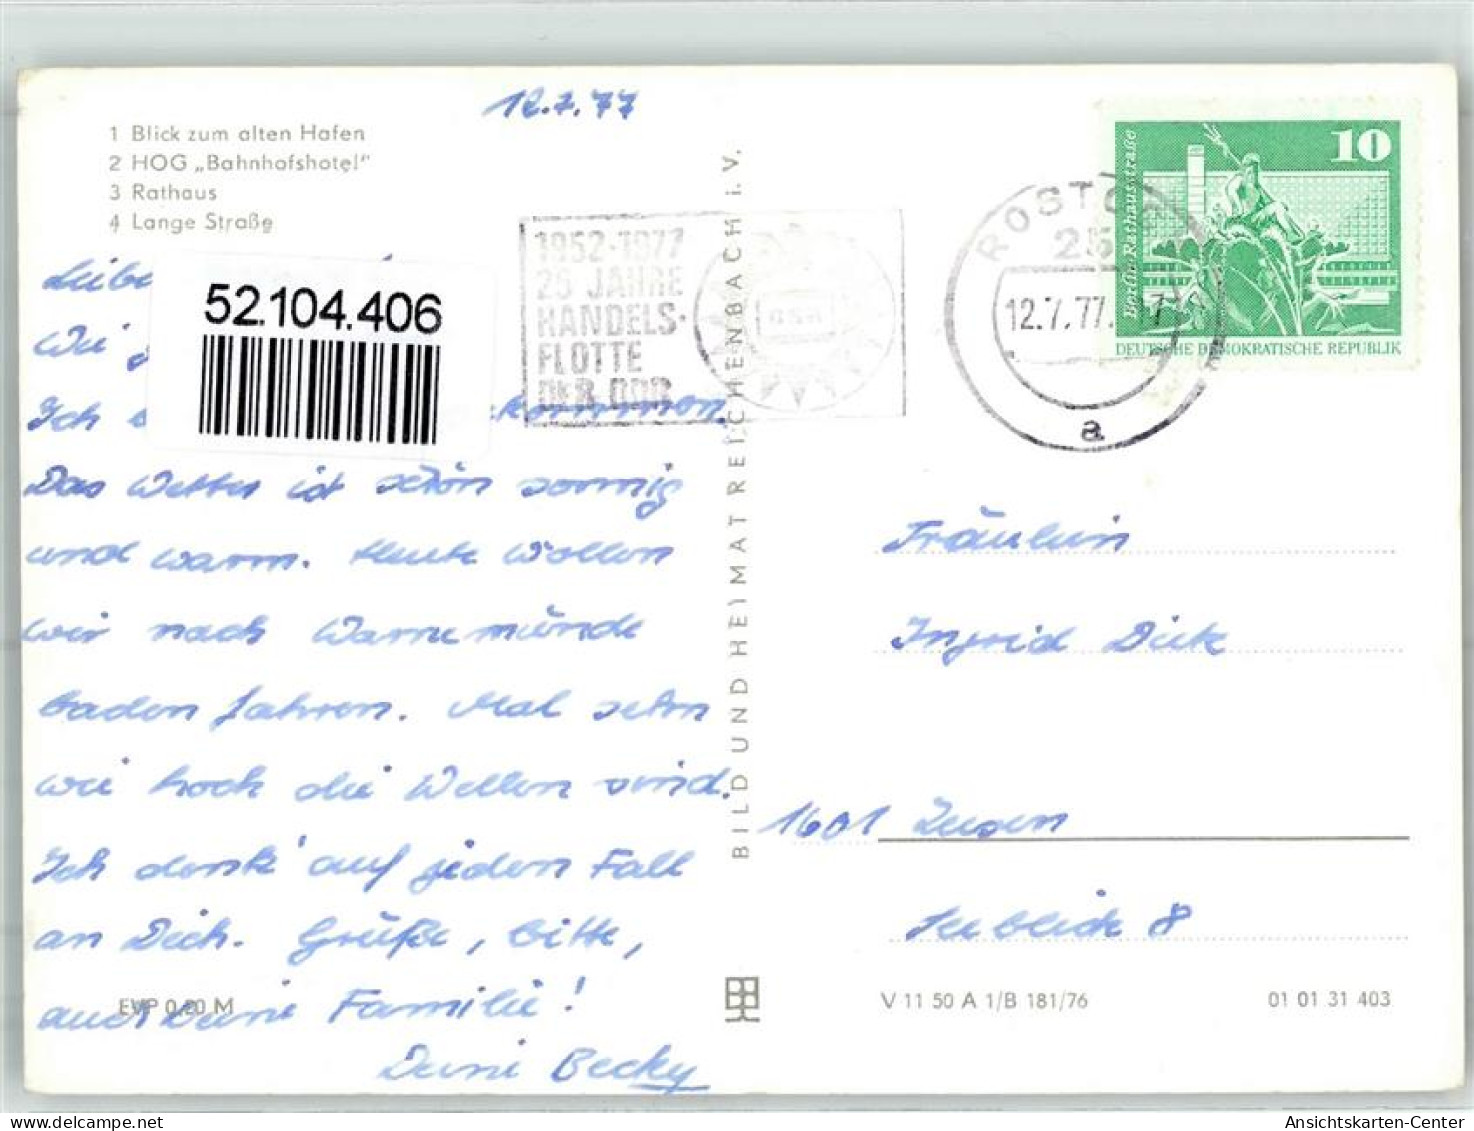 12.7.77
1 Blick zum alten Hafen
2 HOG „Bahnhofshotel"
3 Rathaus
4 Lange Straße
Liebe
Wir
Ich
Das Wetter ist schön sonnig
und warm. Heute wollen
wir nach Warnemünde
baden fahren. Mal sehn
wie hoch die Wellen sind.
Ich denk' auf jeden Fall
an Dich. Grüße, bitte,
auch Deine Familie!
Deine Becky
EVP 0,20 M
52.104.406
1952-1977
25 JAHRE
HANDELS-
FLOTTE
DER DDR
BILD UND HEIMAT REICHENBACH I. V.
ROSTOCK
25
12.7.77
a
10
Berlin · Rathausstraße
DEUTSCHE DEMOKRATISCHE REPUBLIK
Fräulein
Ingrid Dick
1601
Seeblick 8
V 11 50 A 1/B 181/76
01 01 31 403
Ansichtskarten-Center